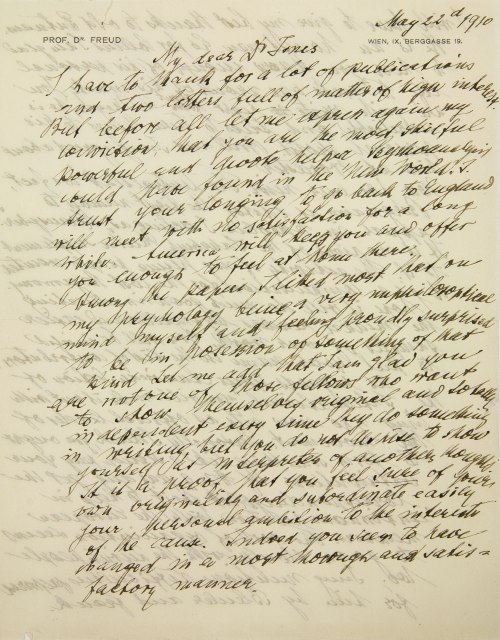 May 22d 1910
PROF. Dr. FREUD
WIEN, IX. BERGGASSE 19.
My dear Dr Jones
I have to thank for a lot of publications
and two letters full of matter of high interest
But before all let me express again my
conviction, that you are the most skilful
powerful and helper Psychoanalysis
could have found in the New World. I
trust your longing to go back to England
will meet with no satisfaction for a long
while. America will keep you and offer
you enough to feel at home there.
Among the papers I liked most that on
my psychology being a very unphilosophical
mind myself and feeling proudly surprised
to be in possession of something of that
kind. Let me add that I am glad you
are not one of those fellows who want
to show themselves original and totally
independent every time they do something
in writing, but you do not despise to show
yourself as interpreter of another's thoughts
It is a proof that you feel sure of your
own originality and subordinate easily
your personal ambition to the interests
of the cause. Indeed you seem to have
changed in a most thorough and satis=
factory manner.